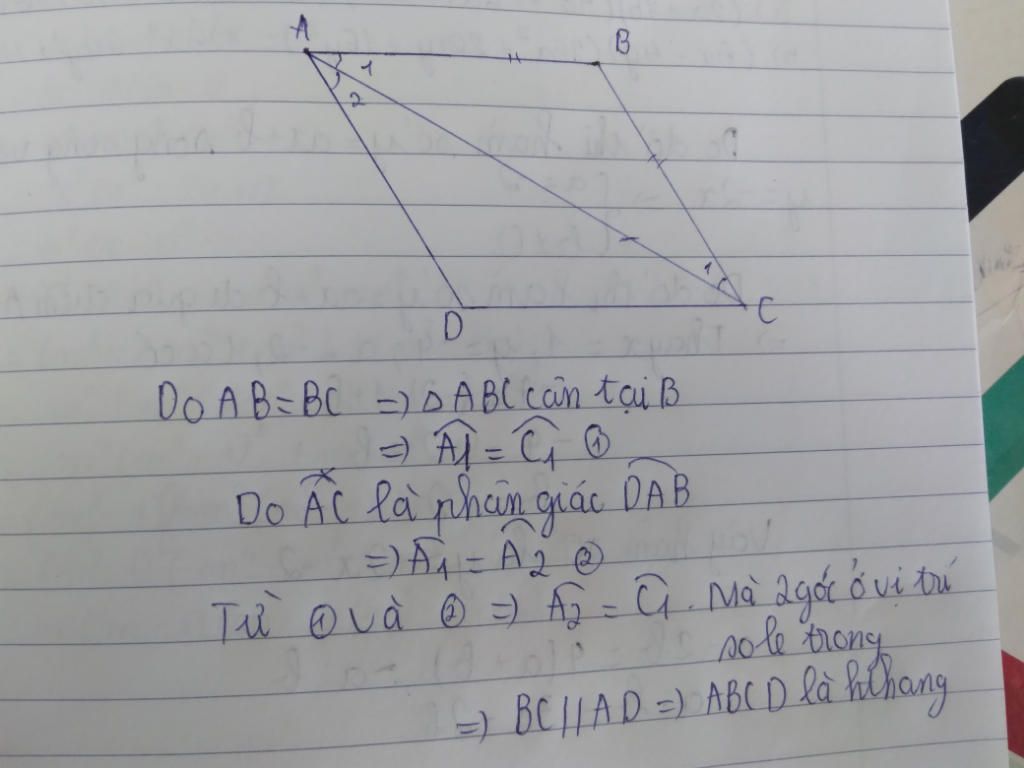 A
B
1
2
1
D
C
Do AB = BC => Δ ABC cân tại B
=> Â1 = Ĉ1 ①
Do AC là phân giác DAB
=> Â1 = Â2 ②
Từ ① và ② => Â2 = Ĉ1. Mà 2 góc ở vị trí
so le trong
=> BC // AD => ABCD là hthang